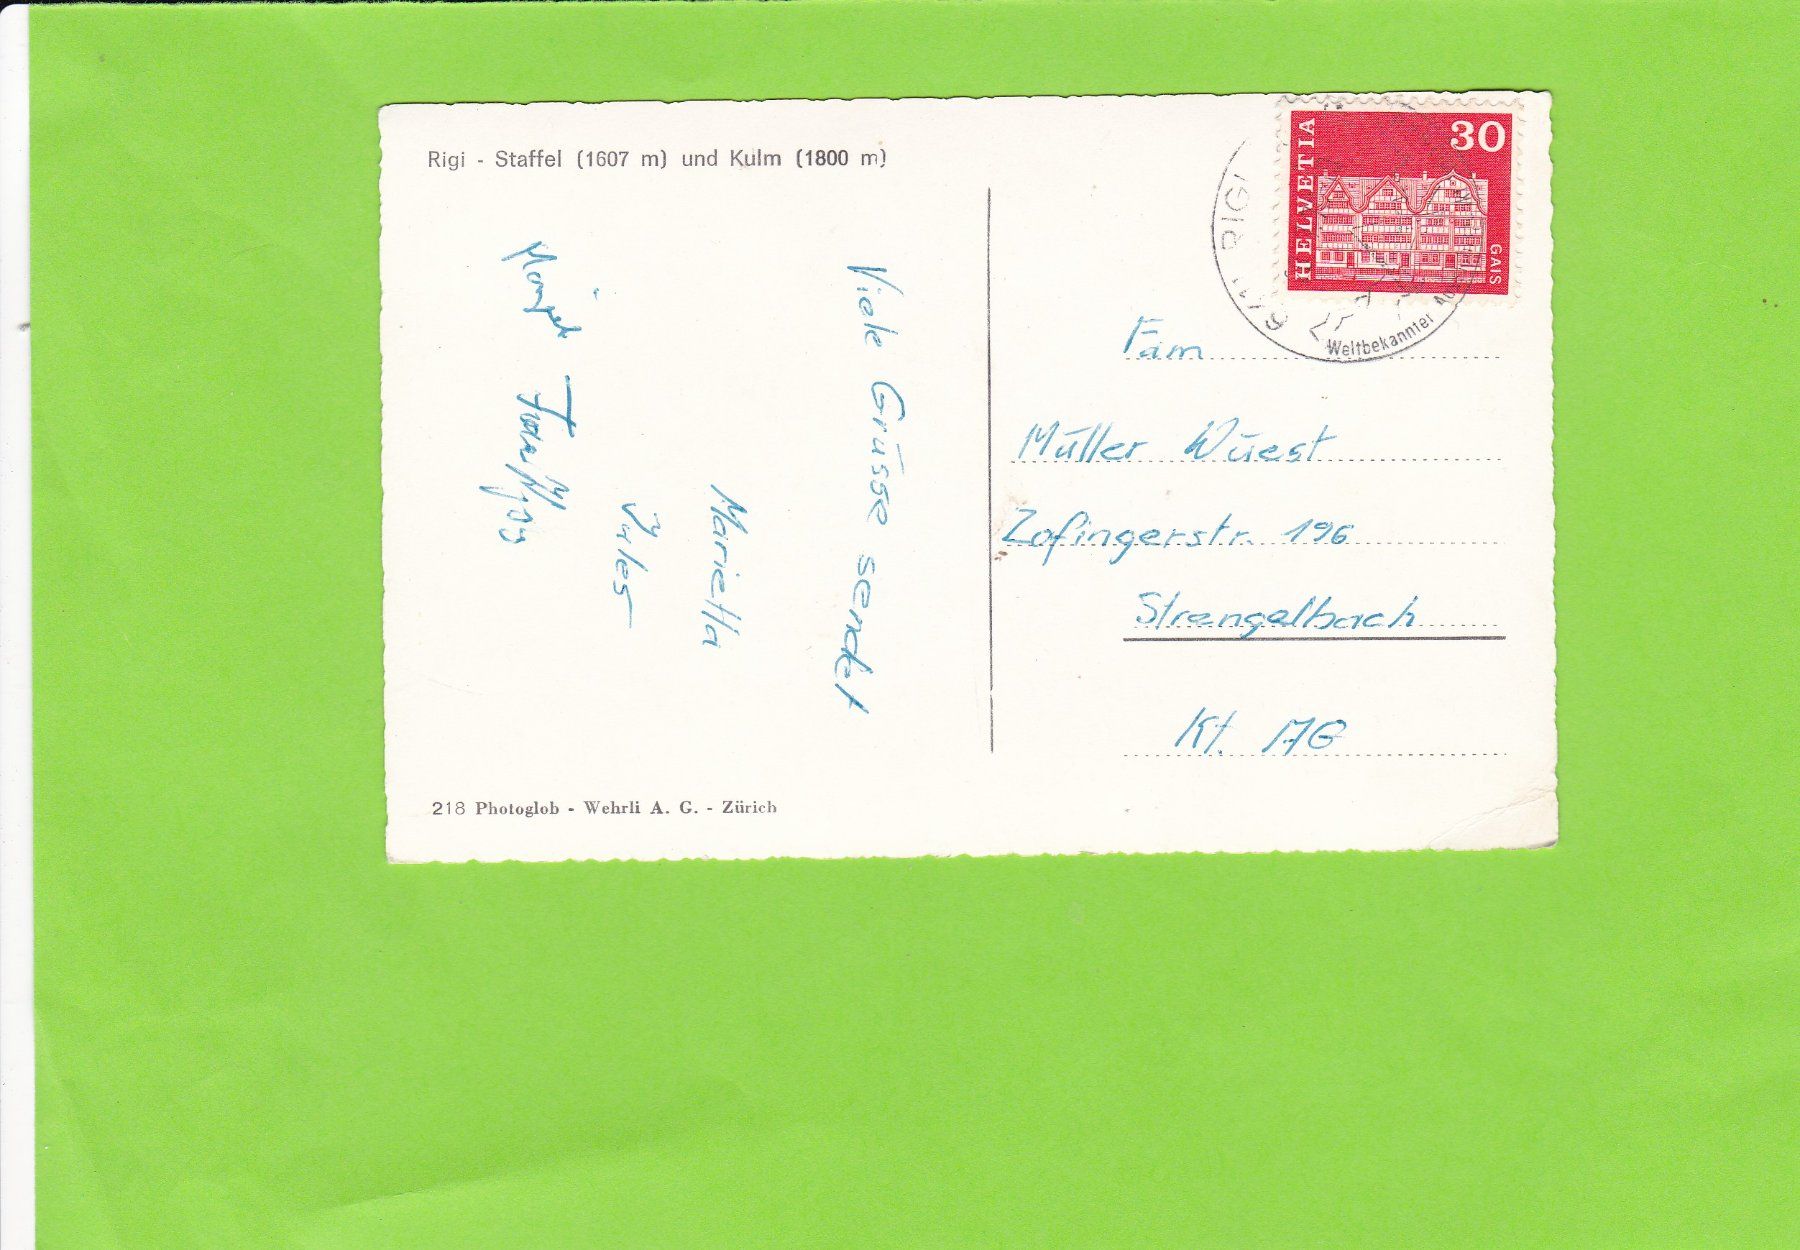 Rigi - Staffel (1607 m) und Kulm (1800 m)
Viele Grüsse sendet
Marietta
Jules
218 Photoglob - Wehrli A. G. - Zürich
HELVETIA
30
GAIS
RIGI
Weltbekannter
Fam
Müller Wüest
Zofingerstr. 196
Strengelbach
Kt. AG